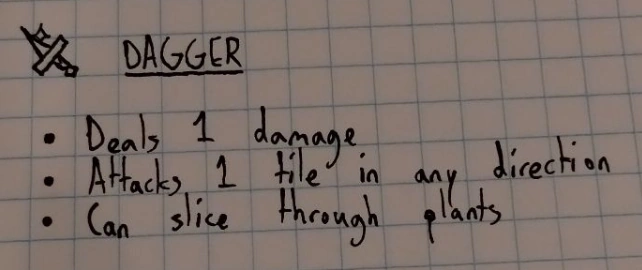 DAGGER
• Deals 1 damage
• Attacks 1 tile in any direction
• Can slice through plants